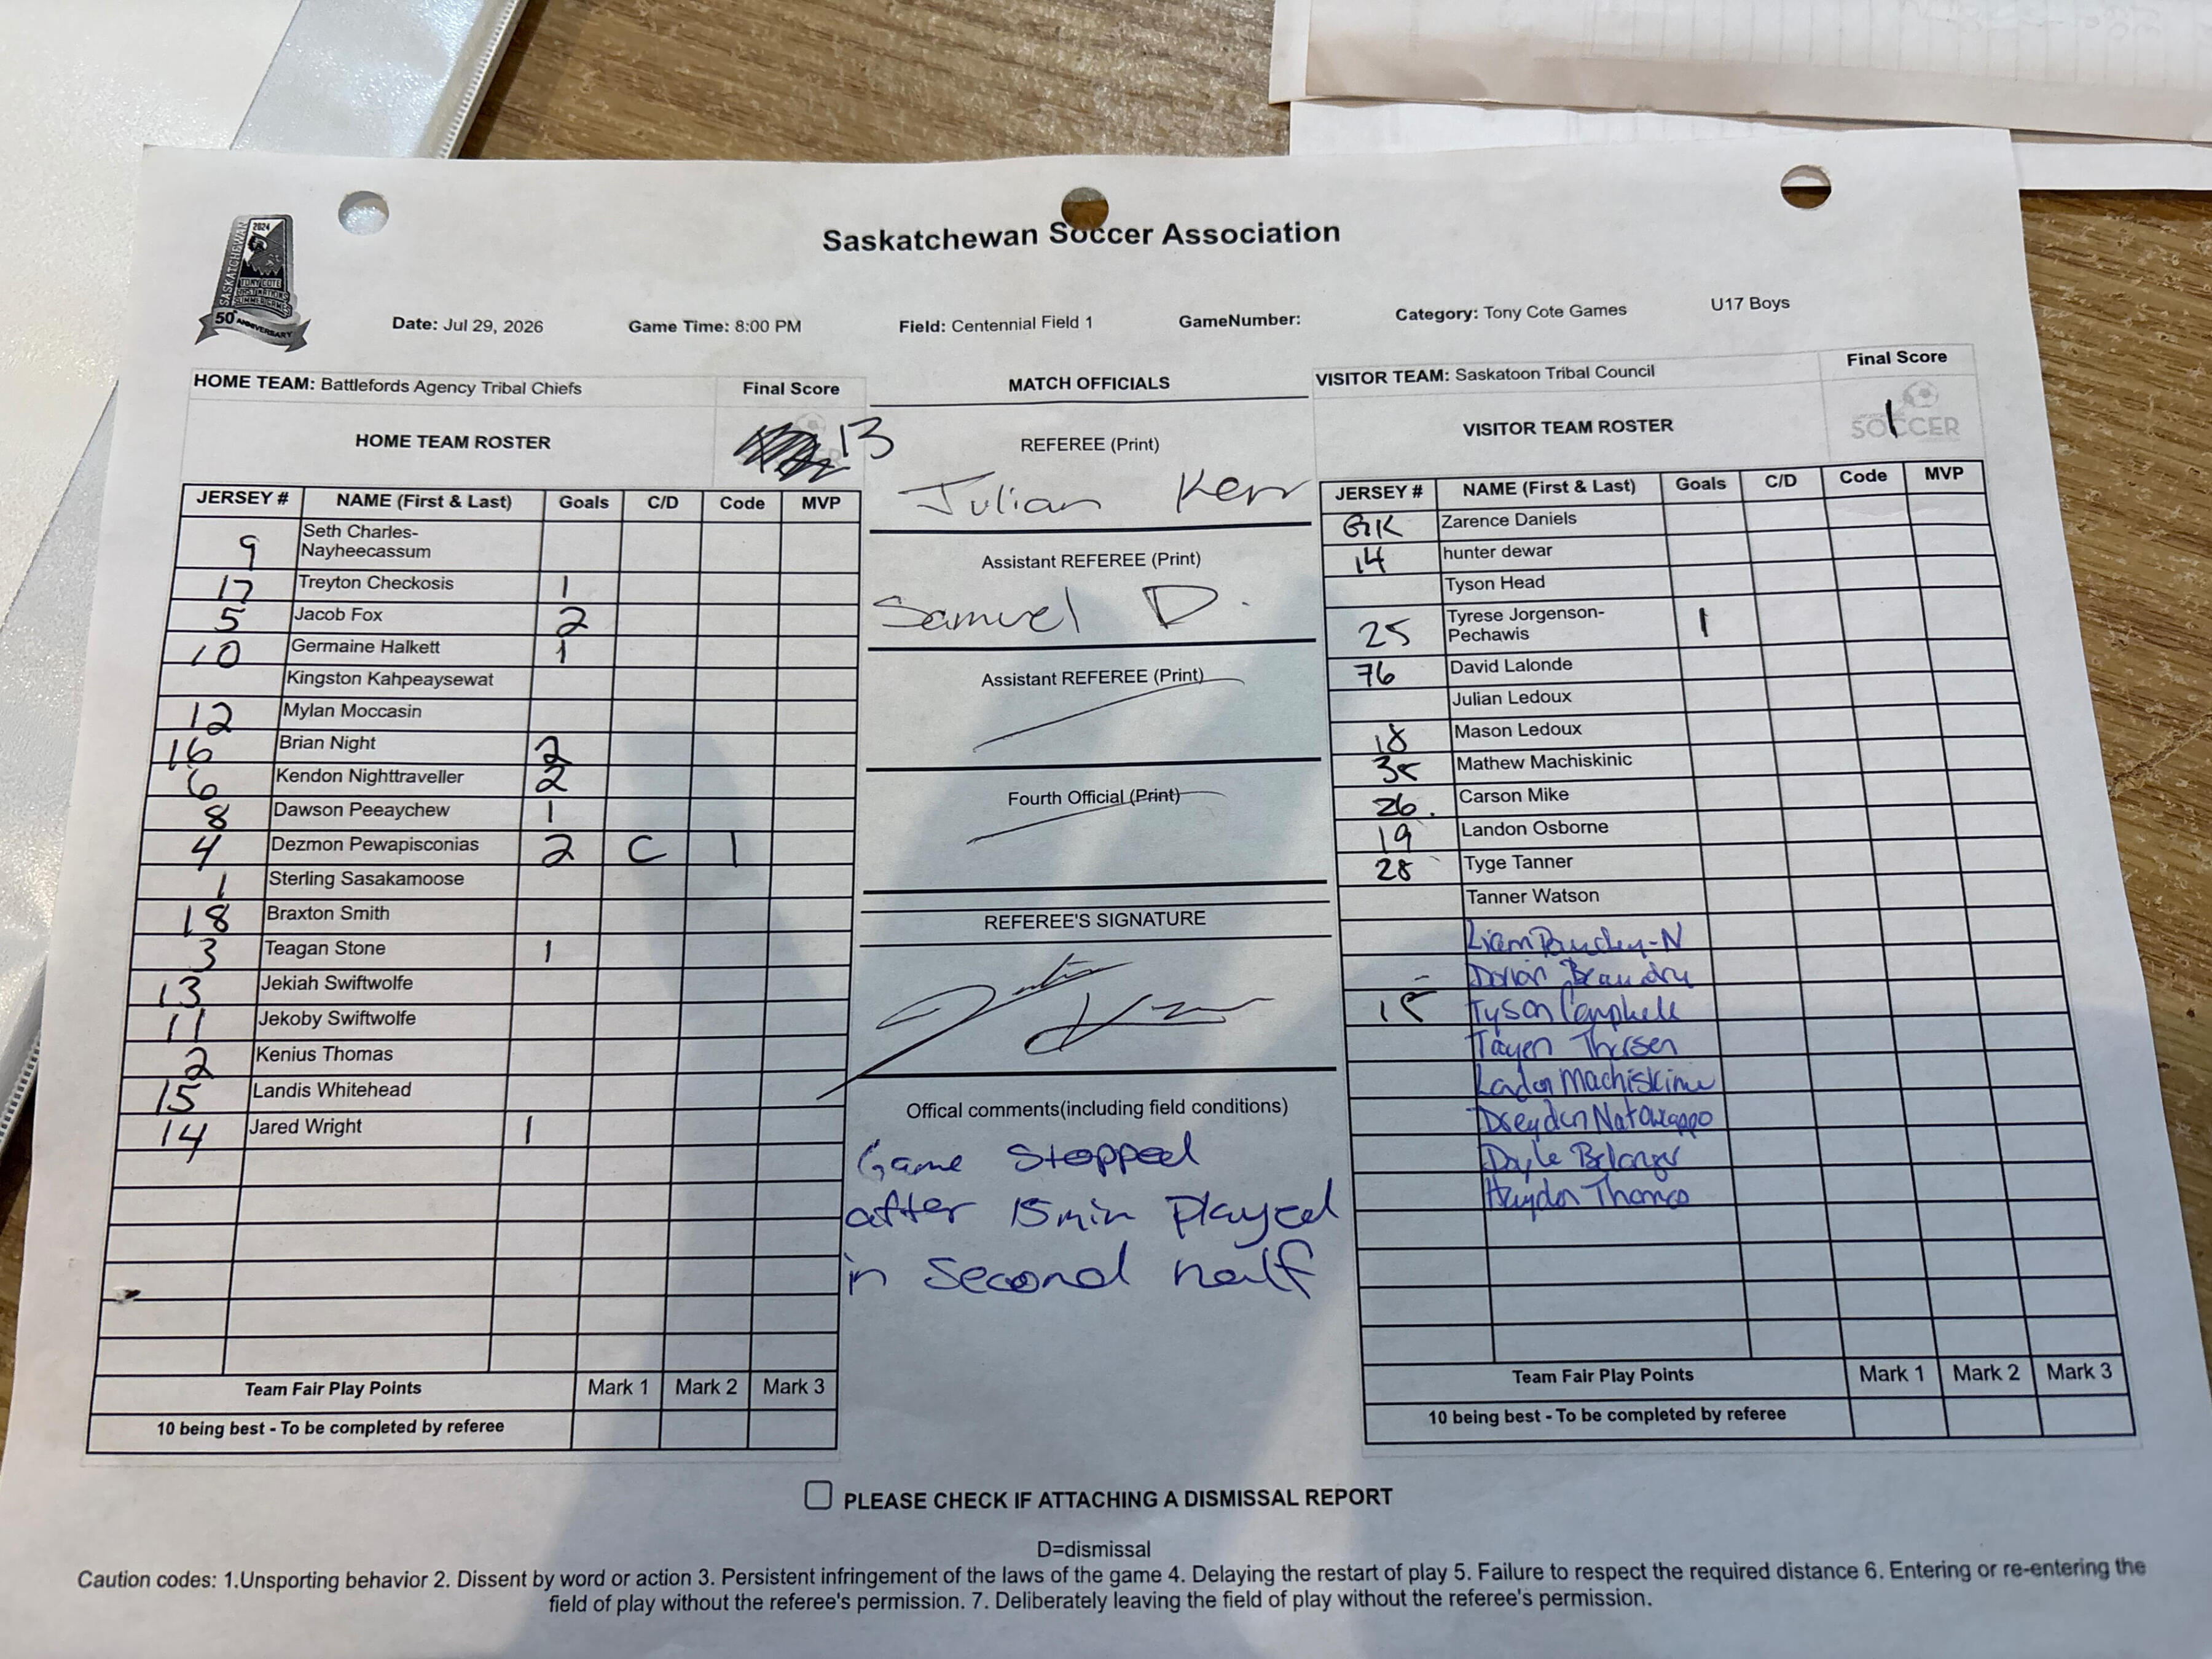 Saskatchewan Soccer Association
2024
SASKATCHEWAN
TONY COTE
FIRST NATIONS
SUMMER GAMES
50th ANNIVERSARY
Date: Jul 29, 2026 Game Time: 8:00 PM Field: Centennial Field 1 GameNumber: Category: Tony Cote Games U17 Boys
HOME TEAM: Battlefords Agency Tribal Chiefs Final Score
HOME TEAM ROSTER 13
JERSEY # NAME (First & Last) Goals C/D Code MVP
9 Seth Charles-
Nayheecassum
17 Treyton Checkosis 1
5 Jacob Fox 2
10 Germaine Halkett 1
Kingston Kahpeaysewat
12 Mylan Moccasin
16 Brian Night 2
6 Kendon Nighttraveller 2
8 Dawson Peeaychew 1
4 Dezmon Pewapisconias 2 C 1
1 Sterling Sasakamoose
18 Braxton Smith
3 Teagan Stone 1
13 Jekiah Swiftwolfe
11 Jekoby Swiftwolfe
2 Kenius Thomas
15 Landis Whitehead
14 Jared Wright 1
Team Fair Play Points Mark 1 Mark 2 Mark 3
10 being best - To be completed by referee
MATCH OFFICIALS
REFEREE (Print)
Julian Kerr
Assistant REFEREE (Print)
Samuel D.
Assistant REFEREE (Print)
Fourth Official (Print)
REFEREE'S SIGNATURE
Offical comments(including field conditions)
Game Stopped
after 15 min Played
in Second half
VISITOR TEAM: Saskatoon Tribal Council Final Score
VISITOR TEAM ROSTER 1
SOCCER
JERSEY # NAME (First & Last) Goals C/D Code MVP
GK Zarence Daniels
14 hunter dewar
Tyson Head
25 Tyrese Jorgenson-
Pechawis 1
76 David Lalonde
Julian Ledoux
18 Mason Ledoux
35 Mathew Machiskinic
26. Carson Mike
19 Landon Osborne
28 Tyge Tanner
Tanner Watson
Liam -N
Dorian Beaudry
15 Tyson Campbell
Tayen
Landon Machiskinic
Dreyden Natowappo
Doyle Belanger
Haydon Thomas
Team Fair Play Points Mark 1 Mark 2 Mark 3
10 being best - To be completed by referee
PLEASE CHECK IF ATTACHING A DISMISSAL REPORT
D=dismissal
Caution codes: 1.Unsporting behavior 2. Dissent by word or action 3. Persistent infringement of the laws of the game 4. Delaying the restart of play 5. Failure to respect the required distance 6. Entering or re-entering the
field of play without the referee's permission. 7. Deliberately leaving the field of play without the referee's permission.